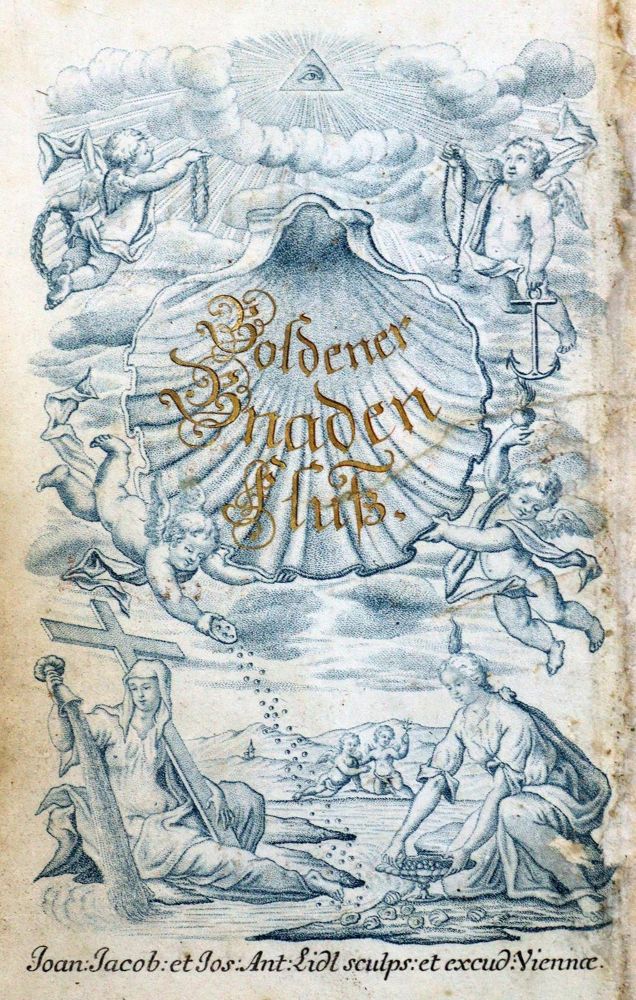 Goldener
Gnaden
Fluß.
Joan: Jacob: et Jos: Ant: Lidl sculps: et excud: Viennæ.